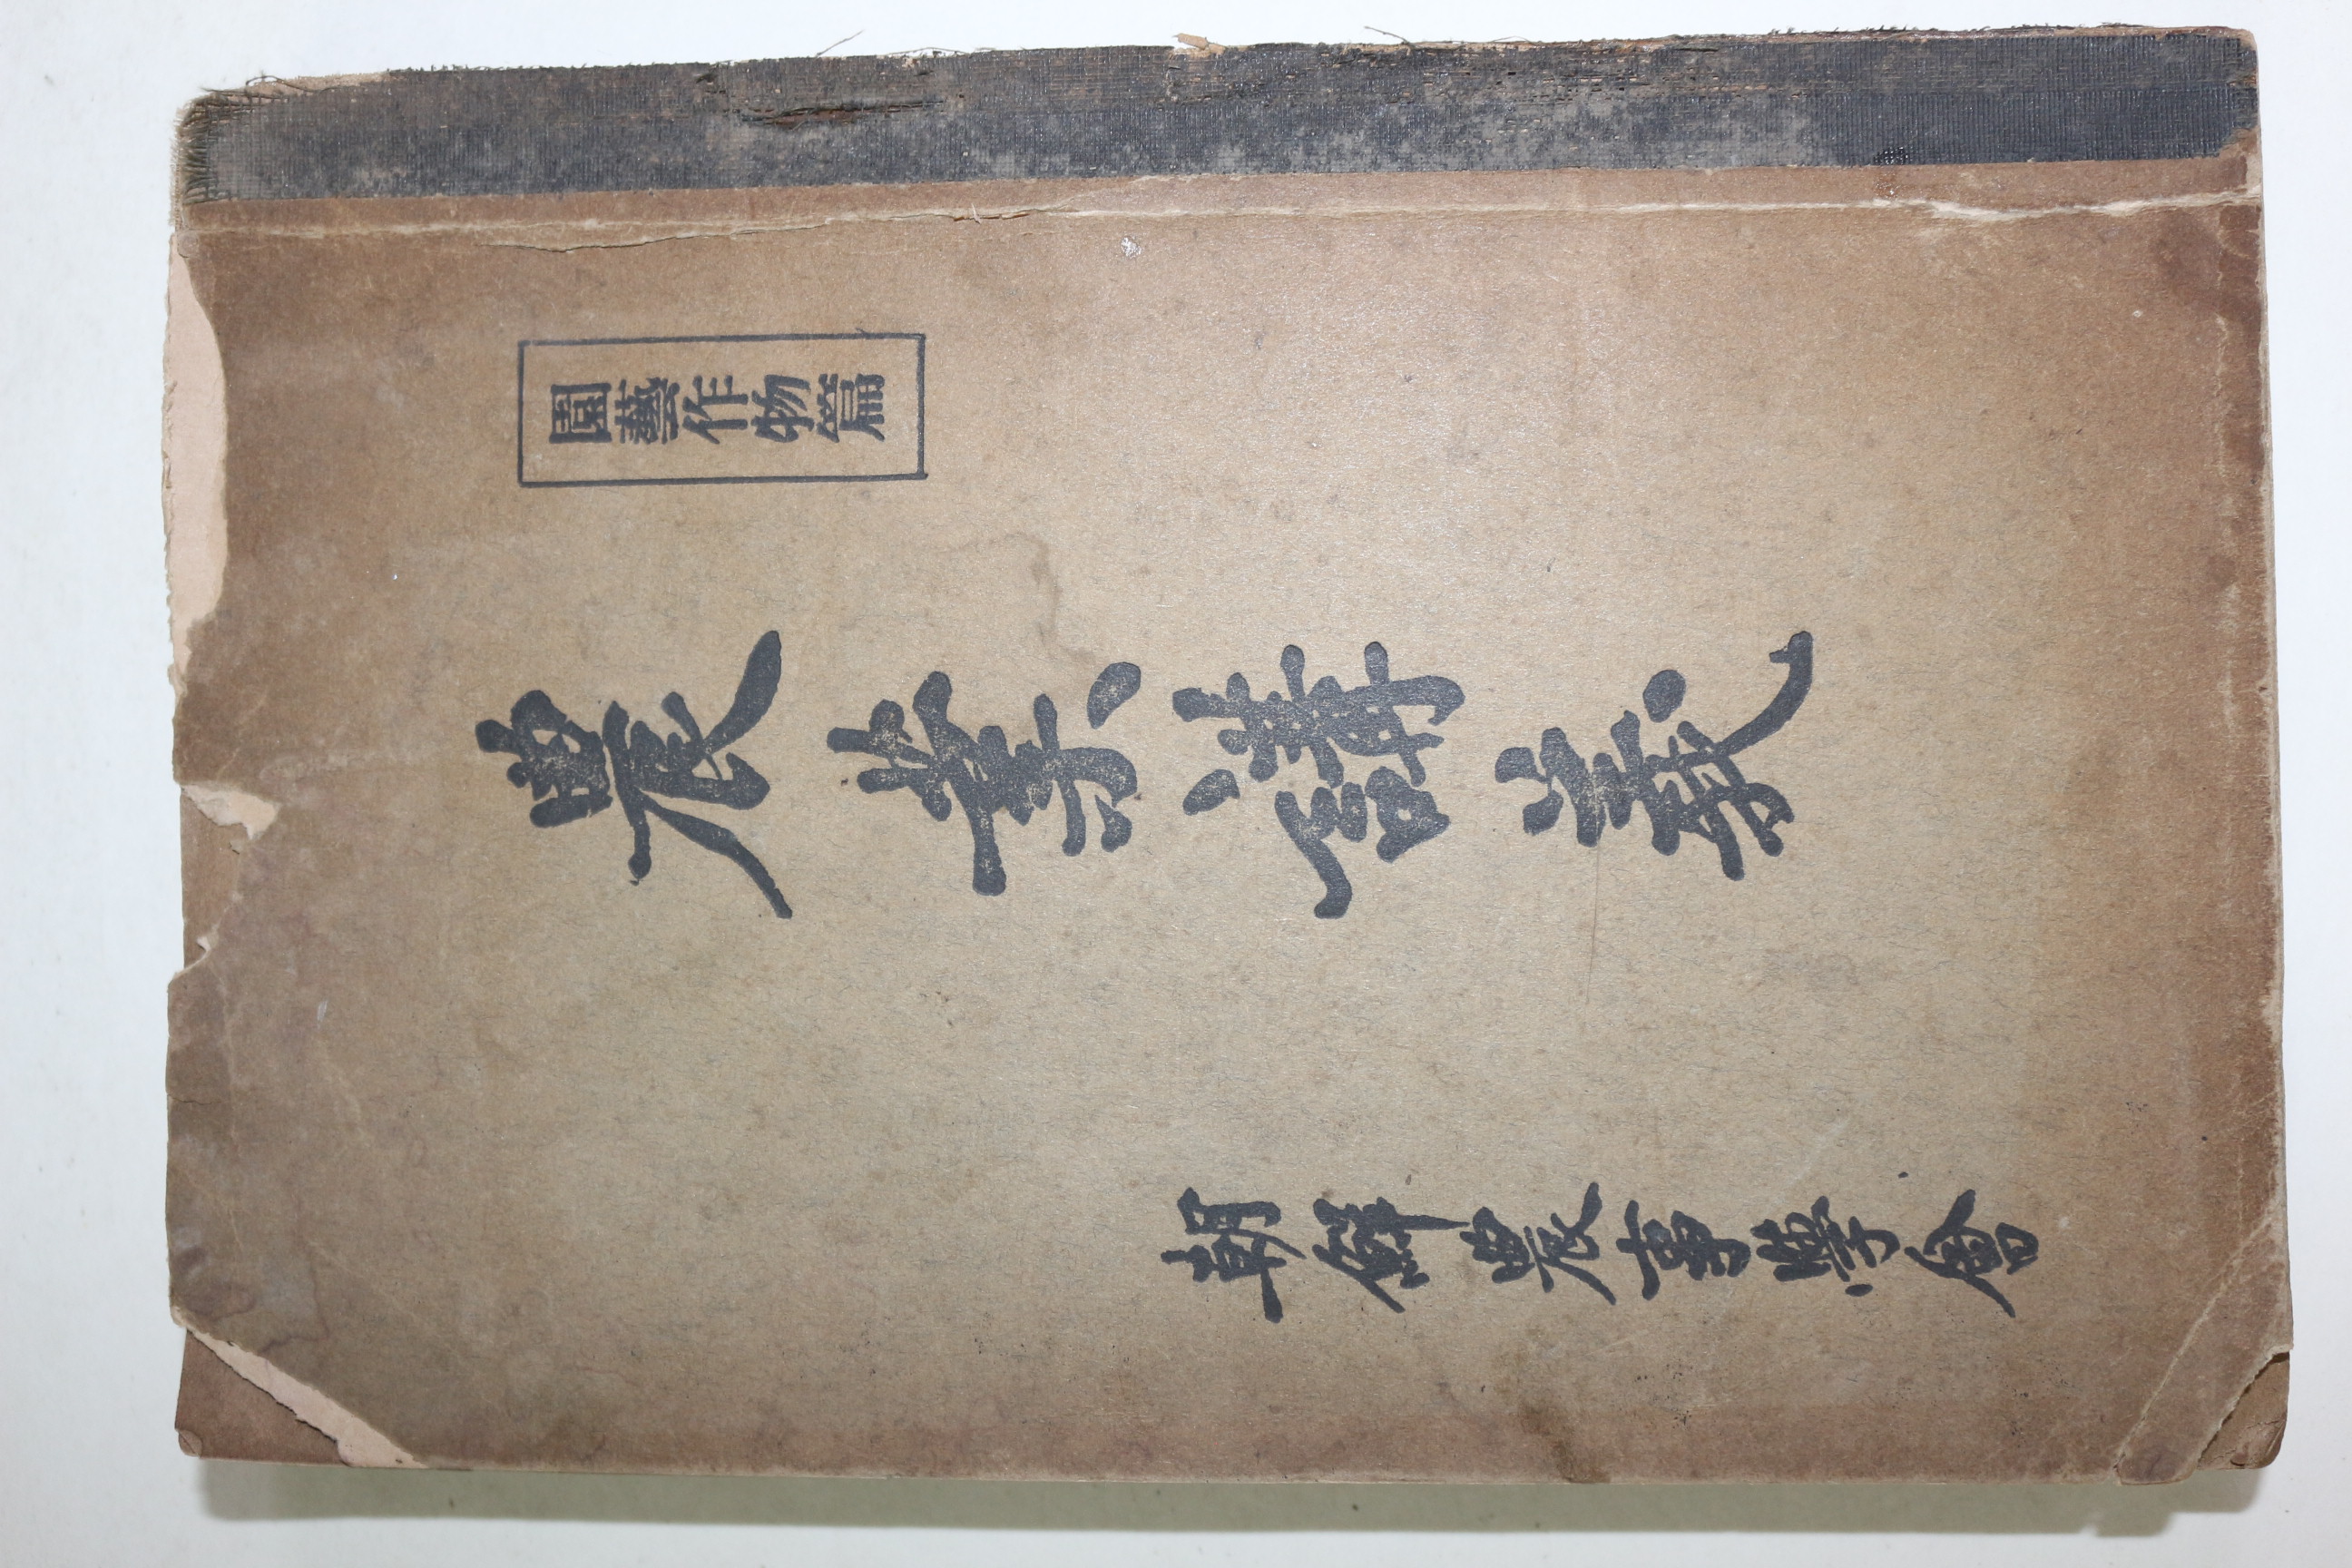 園藝作物篇
農業講義
朝鮮農事學會